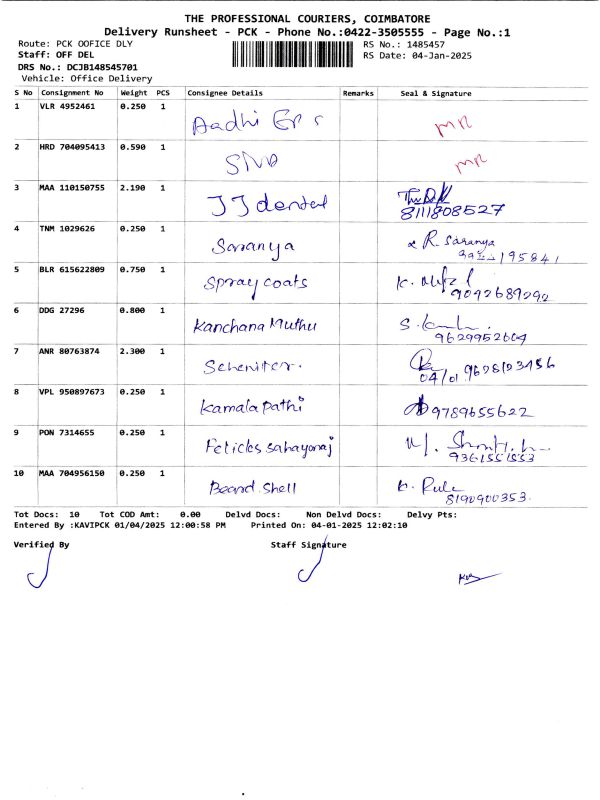 THE PROFESSIONAL COURIERS, COIMBATORE
Delivery Runsheet - PCK - Phone No.:0422-3505555 - Page No.:1
Route: PCK OOFICE DLY RS No.: 1485457
Staff: OFF DEL RS Date: 04-Jan-2025
DRS No.: DCJB148545701
Vehicle: Office Delivery
S No Consignment No Weight PCS Consignee Details Remarks Seal & Signature
1 VLR 4952461 0.250 1 Aadhi MR
2 HRD 704095413 0.590 1 MR
3 MAA 110150755 2.190 1 JJ dental 8111808527
4 TNM 1029626 0.250 1 Saranya R. Saranya
5 BLR 615622809 0.750 1 Spray coats K. 9092689292
6 DDG 27296 0.800 1 Kanchana Muthu S. 9629952604
7 ANR 80763874 2.300 1 04/01
8 VPL 950897673 0.250 1 Kamala pathi 9789655622
9 PON 7314655 0.250 1
10 MAA 704956150 0.250 1 Beand shell 8190900353
Tot Docs: 10 Tot COD Amt: 0.00 Delvd Docs: Non Delvd Docs: Delvy Pts:
Entered By :KAVIPCK 01/04/2025 12:00:58 PM Printed On: 04-01-2025 12:02:10
Verified By Staff Signature